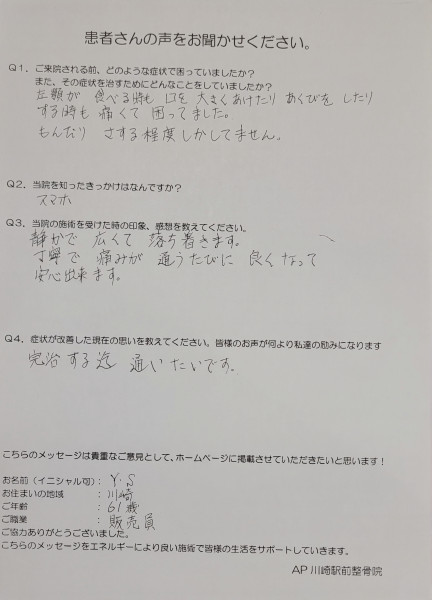 患者さんの声をお聞かせください。
Q1. ご来院される前、どのような症状で困っていましたか?
また、その症状を治すためにどんなことをしていましたか?
左顎が 食べる時も 口を 大きくあけたり あくびを したり
する時も 痛くて 困ってました。
もんだり さする程度しかしてません。
Q2. 当院を知ったきっかけはなんですか?
スマホ
Q3. 当院の施術を受けた時の印象、感想を教えてください。
静かで 広くて 落ち着きます。
丁寧で 痛みが 通うたびに 良くなって
安心出来ます。
Q4. 症状が改善した現在の思いを教えてください。皆様のお声が何より私達の励みになります
完治する迄 通いたいです。
こちらのメッセージは貴重なご意見として、ホームページに掲載させていただきたいと思います!
お名前(イニシャル可): Y・S
お住まいの地域 : 川崎
ご年齢 : 61歳
ご職業 : 販売員
ご協力ありがとうございました。
こちらのメッセージをエネルギーにより良い施術で皆様の生活をサポートしていきます。
AP 川崎駅前整骨院